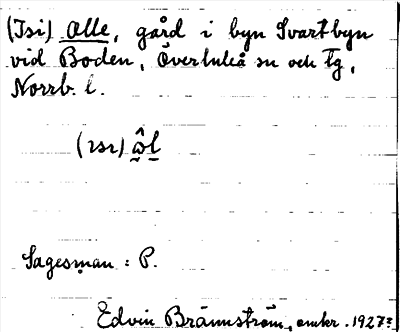 (Isi) Alle, gård i byn Svartbyn
vid Boden, Överluleå sn och tg,
Norrb. l.
(ısı) ɷ̂l
Sagesman : P.
Edvin Brännström, omkr. 1927?